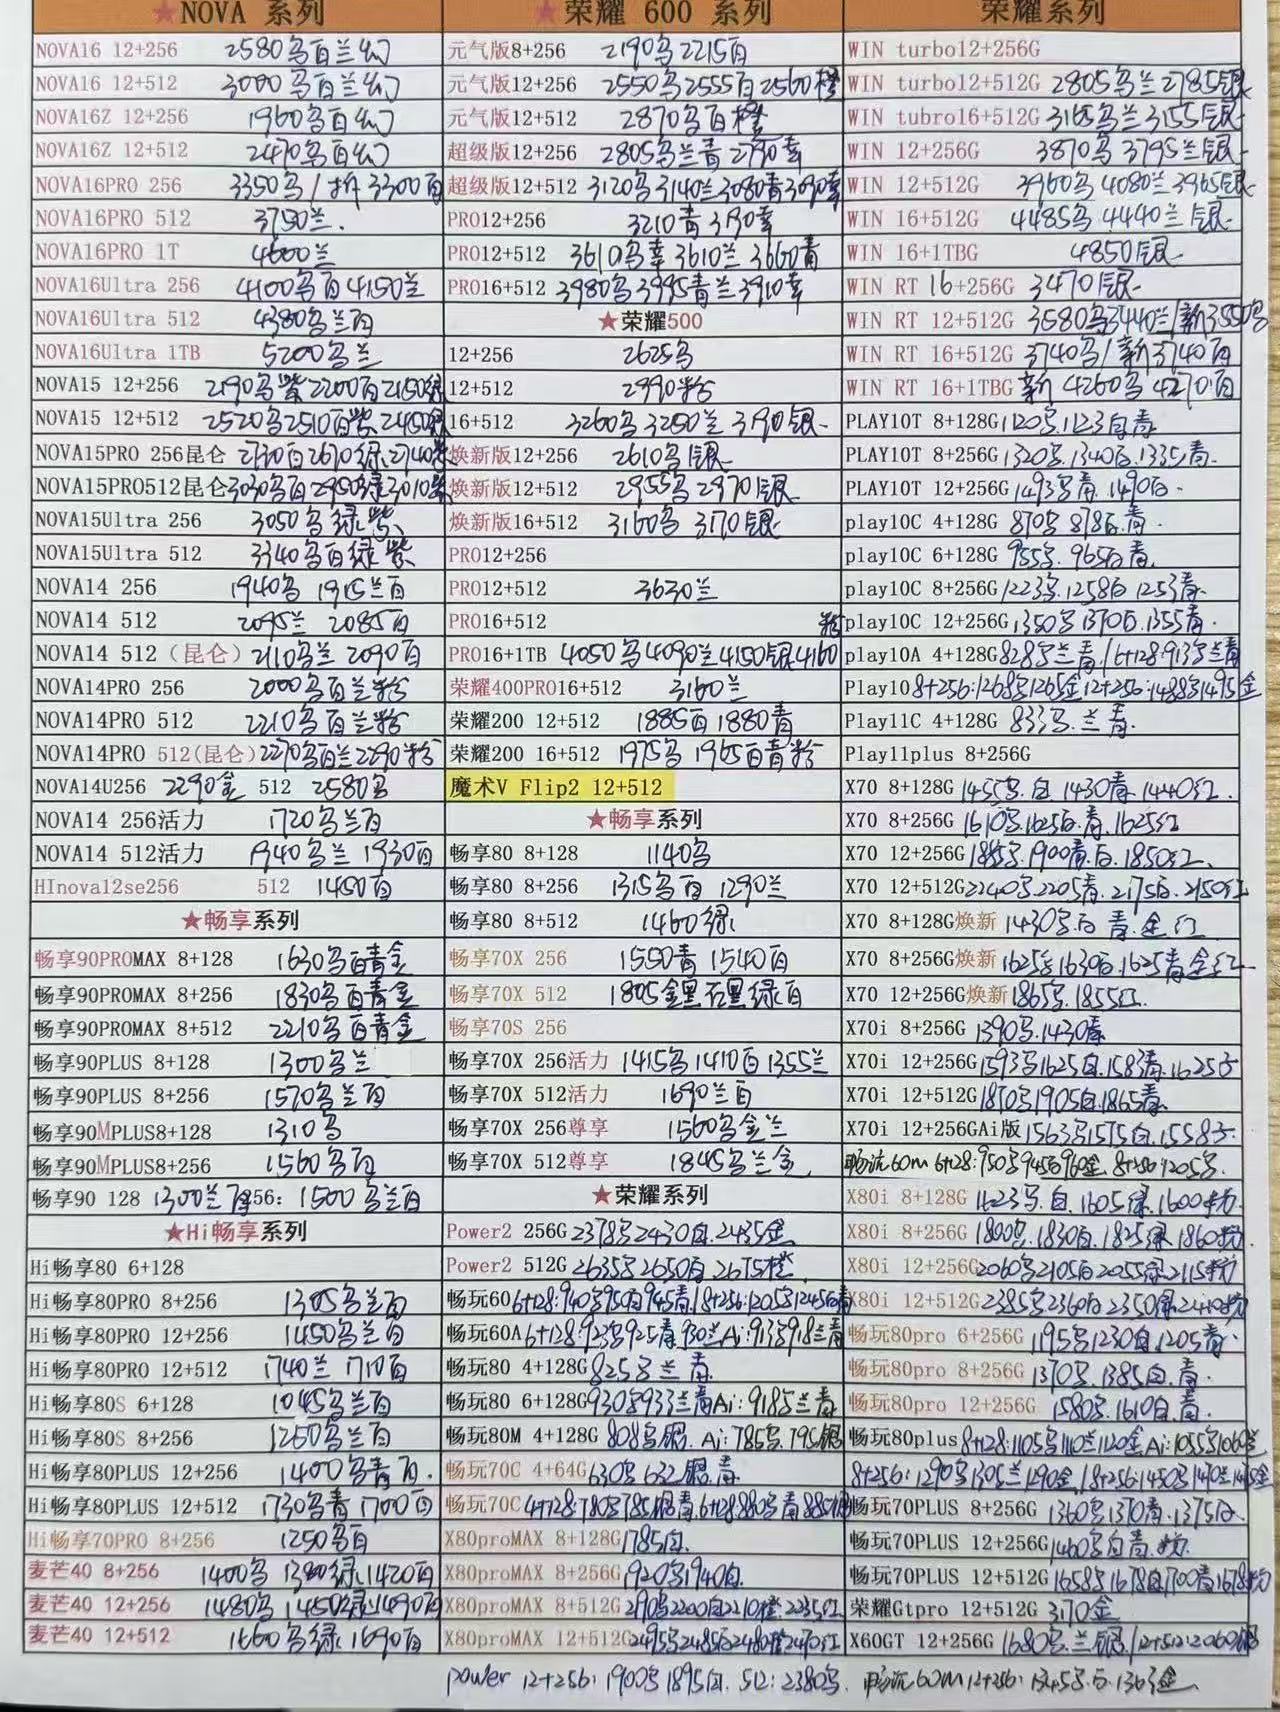 ★NOVA 系列
NOVA16 12+256 2580乌白兰幻
NOVA16 12+512 3000乌白兰幻
NOVA16Z 12+256 1960乌白幻
NOVA16Z 12+512 2470乌白幻
NOVA16PRO 256 3350乌/拆3300白
NOVA16PRO 512 3750兰.
NOVA16PRO 1T 4600兰
NOVA16Ultra 256 4100乌白4150兰
NOVA16Ultra 512 4380乌兰白
NOVA16Ultra 1TB 5200乌兰
NOVA15 12+256 2190乌紫2200白2150绿
NOVA15 12+512 2520乌2510白紫2450绿
NOVA15PRO 256昆仑 2730白2670绿2740紫
NOVA15PRO512昆仑3030乌白2950绿3010紫
NOVA15Ultra 256 3050乌绿紫
NOVA15Ultra 512 3340乌白绿紫
NOVA14 256 1940乌 1915兰白
NOVA14 512 2095兰 2085白
NOVA14 512（昆仑）2110乌兰 2090白
NOVA14PRO 256 2000乌白兰粉
NOVA14PRO 512 2210乌白兰粉
NOVA14PRO 512(昆仑)2270乌白兰2290粉
NOVA14U256 2290金 512 2580乌
NOVA14 256活力 1720乌兰白
NOVA14 512活力 1940乌兰 1930白
HInova12se256 512 1450白
★畅享系列
畅享90PROMAX 8+128 1630乌白青金
畅享90PROMAX 8+256 1830乌白青金
畅享90PROMAX 8+512 2210乌白青金
畅享90PLUS 8+128 1300乌兰
畅享90PLUS 8+256 1570乌兰白
畅享90MPLUS8+128 1310乌
畅享90MPLUS8+256 1560乌白
畅享90 128 1300兰白256: 1500乌兰白
★Hi畅享系列
Hi畅享80 6+128
Hi畅享80PRO 8+256 1305乌兰白
Hi畅享80PRO 12+256 1450乌兰白
Hi畅享80PRO 12+512 1740兰 1710白
Hi畅享80S 6+128 1045乌兰白
Hi畅享80S 8+256 1250乌兰白
Hi畅享80PLUS 12+256 1400乌青白.
Hi畅享80PLUS 12+512 1730乌青1700白
Hi畅享70PRO 8+256 1250乌白
麦芒40 8+256 1400乌1380绿1420白
麦芒40 12+256 1480乌1450绿1490白
麦芒40 12+512 1660乌绿1690白
★荣耀 600 系列
元气版8+256 2190乌2215白
元气版12+256 2550乌2555白2560橙
元气版12+512 2870乌白橙
超级版12+256 2805乌兰青2790幸
超级版12+512 3120乌3140兰3080青3090幸
PRO12+256 3210青3190幸
PRO12+512 3610乌幸3610兰3660青
PRO16+512 3980乌3995青兰3910幸
★荣耀500
12+256 2625乌
12+512 2990粉
16+512 3260乌3250兰3190银
焕新版12+256 2610乌银
焕新版12+512 2955乌2970银
焕新版16+512 3160乌3170银
PRO12+256
PRO12+512 3630兰
PRO16+512 粉
PRO16+1TB 4050乌4090兰4150银4160
荣耀400PRO16+512 3160兰
荣耀200 12+512 1885白1880青
荣耀200 16+512 1975乌 1965白青粉
魔术V Flip2 12+512
★畅享系列
畅享80 8+128 1140乌
畅享80 8+256 1315乌白1290兰
畅享80 8+512 1460绿
畅享70X 256 1550青1540白
畅享70X 512 1805金黑石黑绿白
畅享70S 256
畅享70X 256活力 1415乌1410白1355兰
畅享70X 512活力 1690兰白
畅享70X 256尊享 1560乌金兰
畅享70X 512尊享 1845乌兰金
★荣耀系列
Power2 256G2378乌2430白.2435金
Power2 512G 2635乌2650白2675橙
畅玩60 6+128:940乌950白945青18+256:1205乌1245白青
畅玩60A6+128:923乌925青930兰Ai:913乌918兰青
畅玩80 4+128G825乌兰青.
畅玩80 6+128G930乌933兰青Ai:918乌兰青
畅玩80M 4+128G 808乌银. Ai:785乌795银
畅玩70C 4+64G630乌632银青
畅玩70C 4+128:780乌785银青.6+128880乌青885银
X80proMAX 8+128G1785白.
X80proMAX 8+256G1920乌1940白.
X80proMAX 8+512G2190乌2200白2210橙.2235红
X80proMAX 12+512G2495乌2485白2480橙2470红
荣耀系列
WIN turbo12+256G
WIN turbo12+512G 2805乌兰2785银
WIN tubro16+512G3165乌兰3155银
WIN 12+256G 3870乌3795兰银
WIN 12+512G 3960乌4080兰3965银
WIN 16+512G 4485乌4440兰银
WIN 16+1TBG 4850银
WIN RT 16+256G 3470银
WIN RT 12+512G 3580乌3440兰/新3550乌
WIN RT 16+512G 3740乌/新3740白
WIN RT 16+1TBG 新 4260乌4270白
PLAY10T 8+128G1120乌.1123白青
PLAY10T 8+256G 1320乌.1340白.1335青.
PLAY10T 12+256G1493乌青.1490白.
play10C 4+128G 870乌878白.青.
play10C 6+128G 955乌.965白青.
play10C 8+256G1223乌.1258白1253青.
play10C 12+256G1350乌1370白.1355青.
play10A 4+128G828乌兰青./6+128:913乌兰青
Play10 8+256:1268乌1265金12+256:1488乌1495金
Play11C 4+128G 833乌.兰青.
Play11plus 8+256G
X70 8+128G 1455乌.白.1430青.1440红.
X70 8+256G 1610乌.1625白.青.1625红
X70 12+256G1885乌.1900青.白.1850红.
X70 12+512G2240乌.2205青.2175白.2150红
X70 8+128G焕新 1430乌白青.金红
X70 8+256G焕新 1625乌1630白.1625青金红
X70 12+256G焕新1865乌.1855红.
X70i 8+256G 1390乌.1430青
X70i 12+256G1593乌1625白.1583青.1625
X70i 12+512G1870乌1905白1865青.
X70i 12+256GAi版1563乌1575白.1558
畅玩60m 6+128:950乌945白960金 8+256:1205乌.
X80i 8+128G 1623乌.白.1605绿.1600粉
X80i 8+256G 1800乌.1830白.1825绿1860粉
X80i 12+256G2060乌2105白2055绿2115粉
X80i 12+512G2385乌2360白2350绿2410粉
畅玩80pro 6+256G 1195乌1230白1205青.
畅玩80pro 8+256G 1370乌.1385白.青.
畅玩80pro 12+256G 1580乌.1610白.青.
畅玩80plus8+128:1105乌1110兰1120金Ai:1055乌1060兰
8+256:1290乌1305兰1290金
畅玩70PLUS 8+256G 1360乌1370青.1375白.
畅玩70PLUS 12+256G1460乌白青.粉.
畅玩70PLUS 12+512G1658乌1678白1700青1678粉
荣耀Gtpro 12+512G 3170金
X60GT 12+256G 1680乌.兰银./12+512:2060银
power 12+256:1900乌1895白. 512:2380乌. 畅玩60m12+256:1345乌.白.1363金.